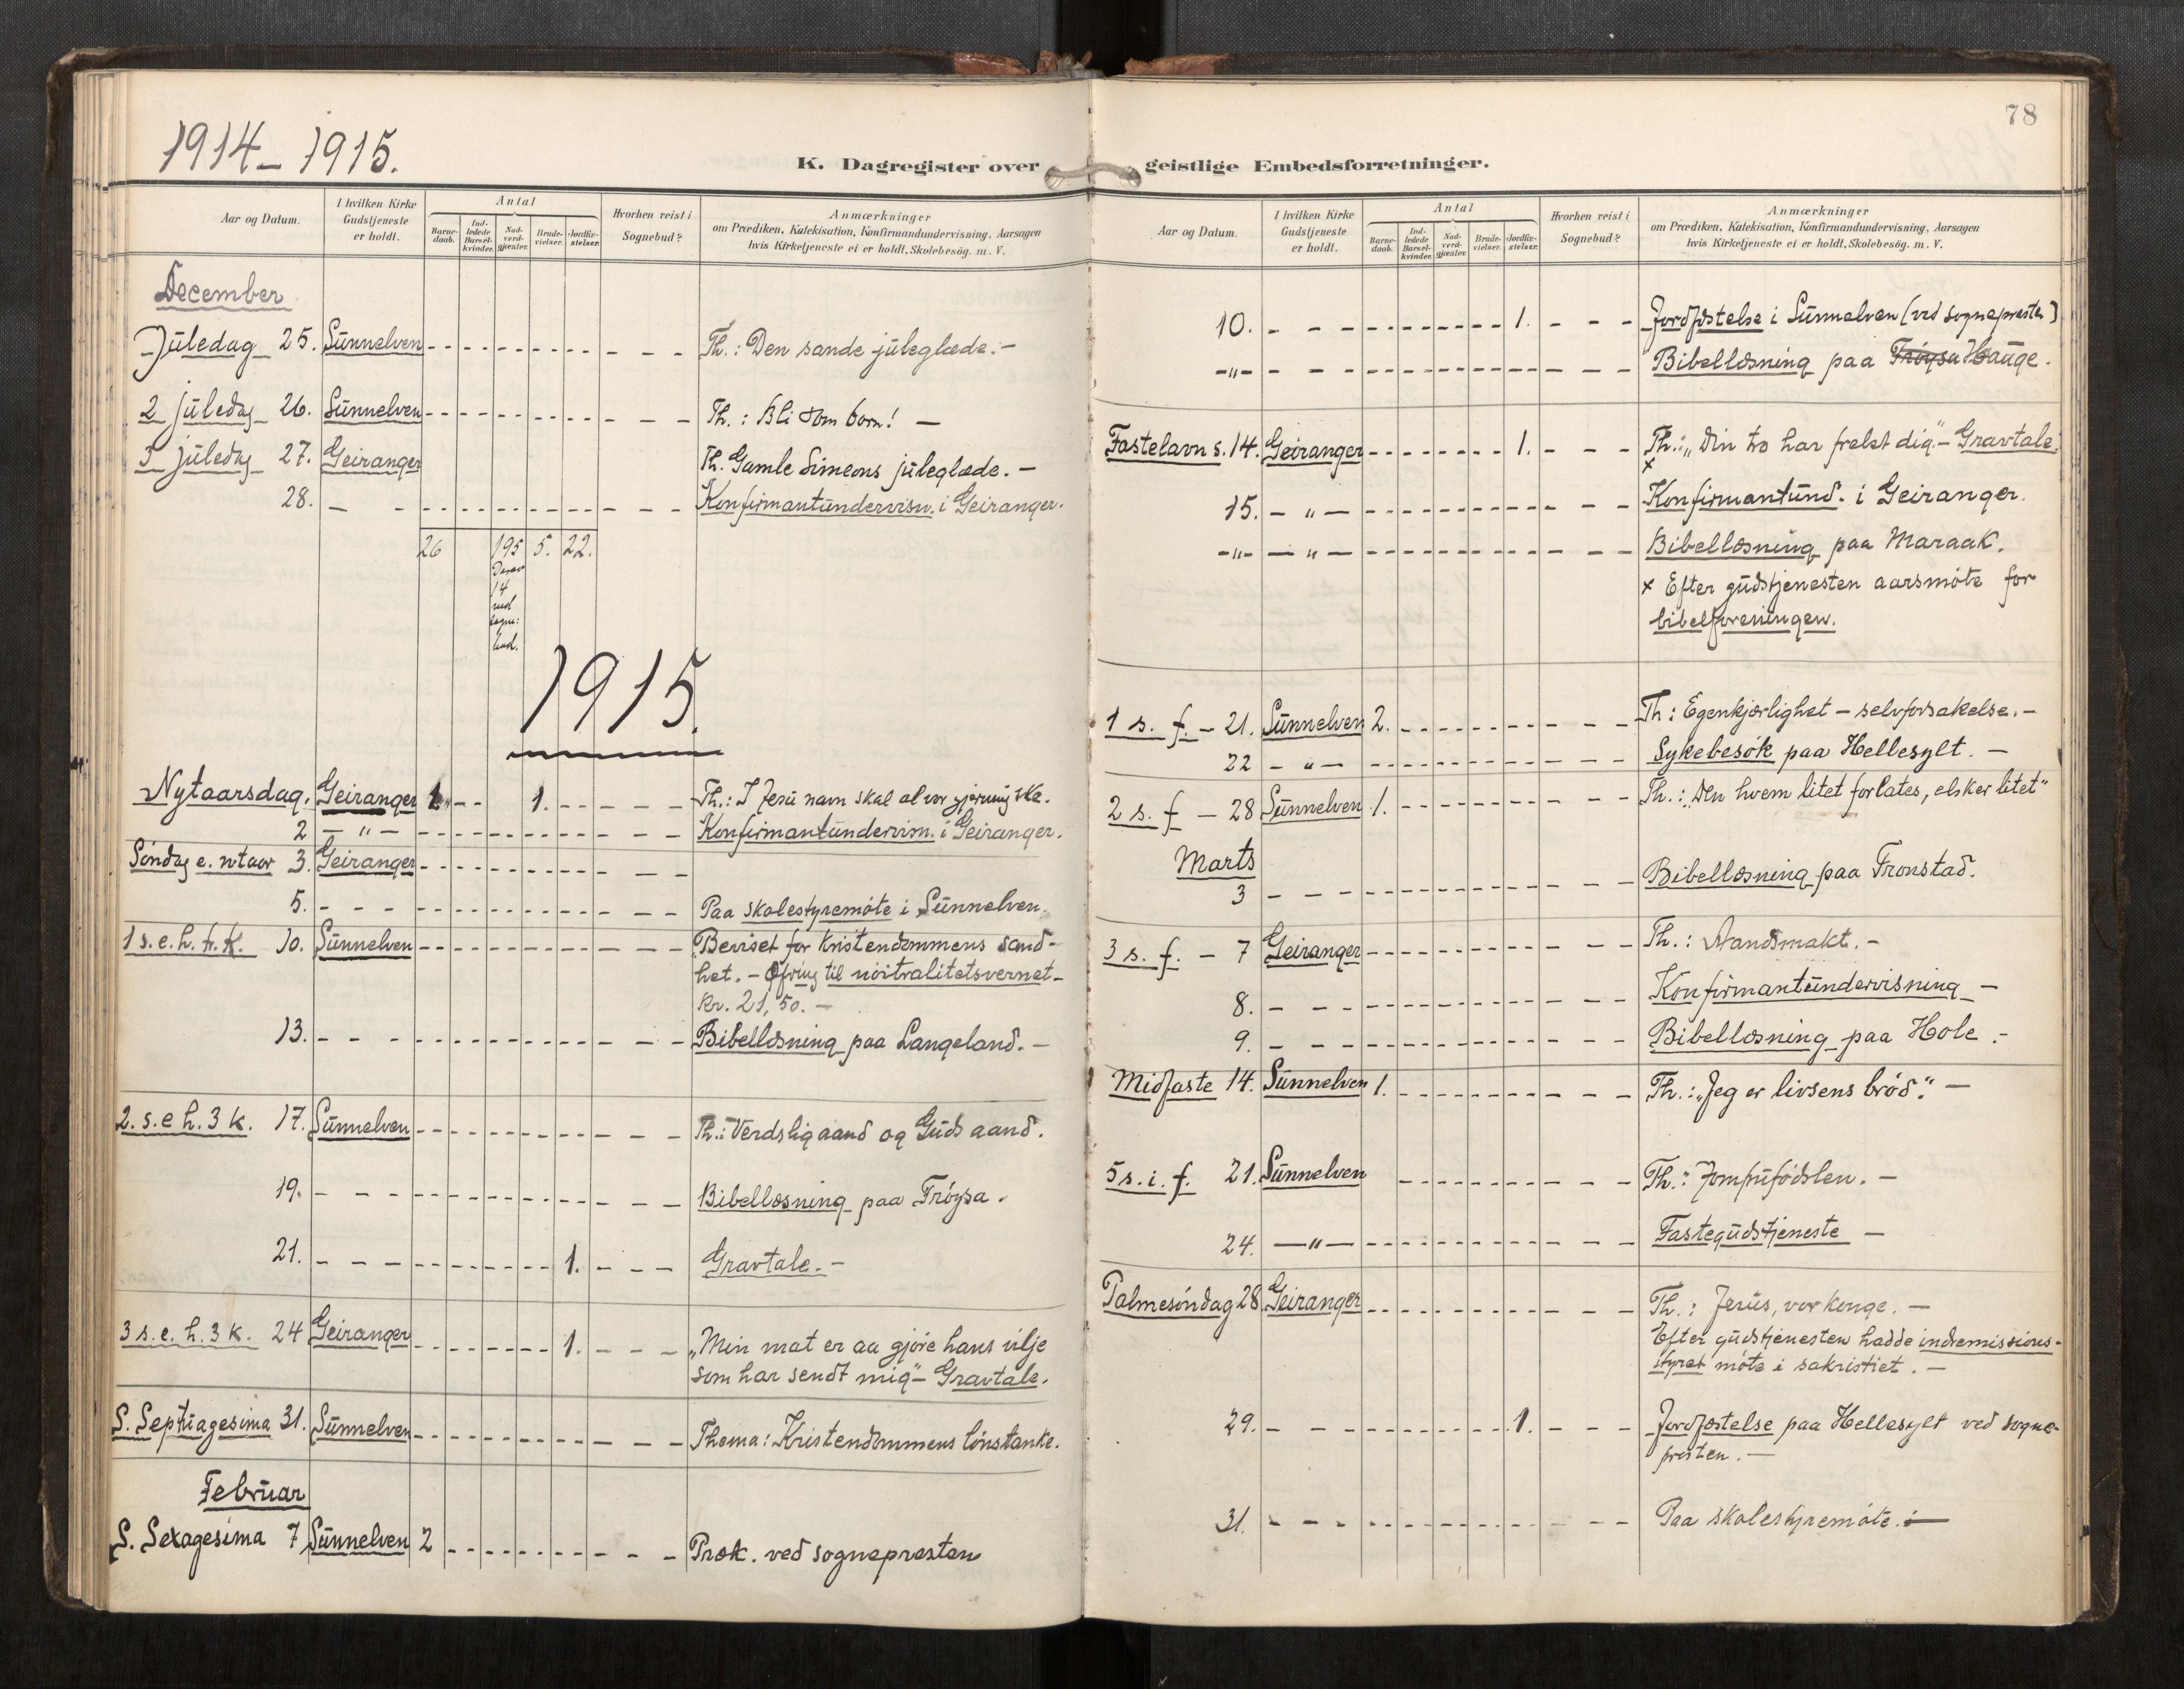 1914–1915.
K. Dagregister over
Aar og Datum.
I hvilken Kirke Gudstjeneste er holdt.
Antal
Barne-daab.
Ind-ledede Barsel-kvinder.
Nad-verd-gjæster.
Brude-vielser.
Jordfæ-stelser.
Hvorhen reist i Sognebud?
Anmærkninger
om Prædiken, Katekisation, Konfirmandundervisning, Aarsagen
hvis Kirketjeneste ei er holdt, Skolebesög. m. V.
December
Juledag 25. Sunnelven Th.: Den sande juleglæde. –
2 juledag 26. Sunnelven Th.: Bli som born! –
3 juledag 27. Geiranger Th. Gamle Simeons juleglæde. –
28. – Konfirmantundervisn. i Geiranger.
26 195 5. 22.
Derav
14
ved
sogne:
bud.
1915.
Nytaarsdag. Geiranger 1. 1. Th.: I Jesu navn skal al vor gjerning ske.
2 – " – Konfirmantundervisn. i Geiranger.
Söndag e. ntaar 3. Geiranger
5. Paa skolestyremöte i Sunnelven.
1 s. e. h. tr. K. 10. Sunnelven Beviset for kristendommens sand-
het. – Ofring til nöitralitetsvernet –
kr. 21,50. –
13. Bibellæsning paa Langeland. –
2. s. e h. 3 k. 17. Sunnelven Th.: Verdslig aand og Guds aand.
19. Bibellæsning paa Tröysa.
21. 1. Gravtale. –
3 s. e. h. 3 k. 24 Geiranger 1. „Min mat er aa gjöre hans vilje
som har sendt mig“ – Gravtale.
S. Septuagesima 31. Sunnelven Thema: Kristendommens lönstanke.
Februar
S. Sexagesima 7 Sunnelven 2 Præk. ved sognepresten
78
geistlige Embedsforretninger.
Aar og Datum.
I hvilken Kirke Gudstjeneste er holdt.
Antal
Barne-daab.
Ind-ledede Barsel-kvinder.
Nad-verd-gjæster.
Brude-vielser.
Jordfæ-stelser.
Hvorhen reist i Sognebud?
Anmærkninger
om Prædiken, Katekisation, Konfirmandundervisning, Aarsagen
hvis Kirketjeneste ei er holdt, Skolebesög. m. V.
10. 1. Jordfæstelse i Sunnelven (ved sognepresten)
– " – Bibellæsning paa Tröysa Hauge.
Fastelavn s. 14. Geiranger 1. Th.: „Din tro har frelst dig“ – Gravtale.
x
15. – " – Konfirmantund. i Geiranger.
– " – – " – Bibellæsning paa Maraak.
x Efter gudstjenesten aarsmöte for
bibelforeningen.
1 s. f. – 21. Sunnelven 2. Th: Egenkjærlighet – selvforsakelse. –
22 – " – Sykebesök paa Hellesylt. –
2 s. f – 28 Sunnelven 1. Th.: „Den hvem litet forlates, elsker litet“
Marts
3 Bibellæsning paa Tronstad.
3 s. f. – 7 Geiranger Th.: Aandsmakt. –
8. Konfirmantundervisning –
9. Bibellæsning paa Hole. –
Midfaste 14. Sunnelven 1. Th.: „Jeg er livsens bröd.“ –
5 s. i. f. 21. Sunnelven Th.: Jomfrufödslen. –
24. – " – Fastegudstjeneste –
Palmesöndag 28. Geiranger Th.: Jesus, vor konge. –
Efter gudstjenesten hadde indremissions-
styret möte i sakristiet. –
29. 1. Jordfæstelse paa Hellesylt ved sogne-
presten. –
31. Paa skolestyremöte. i